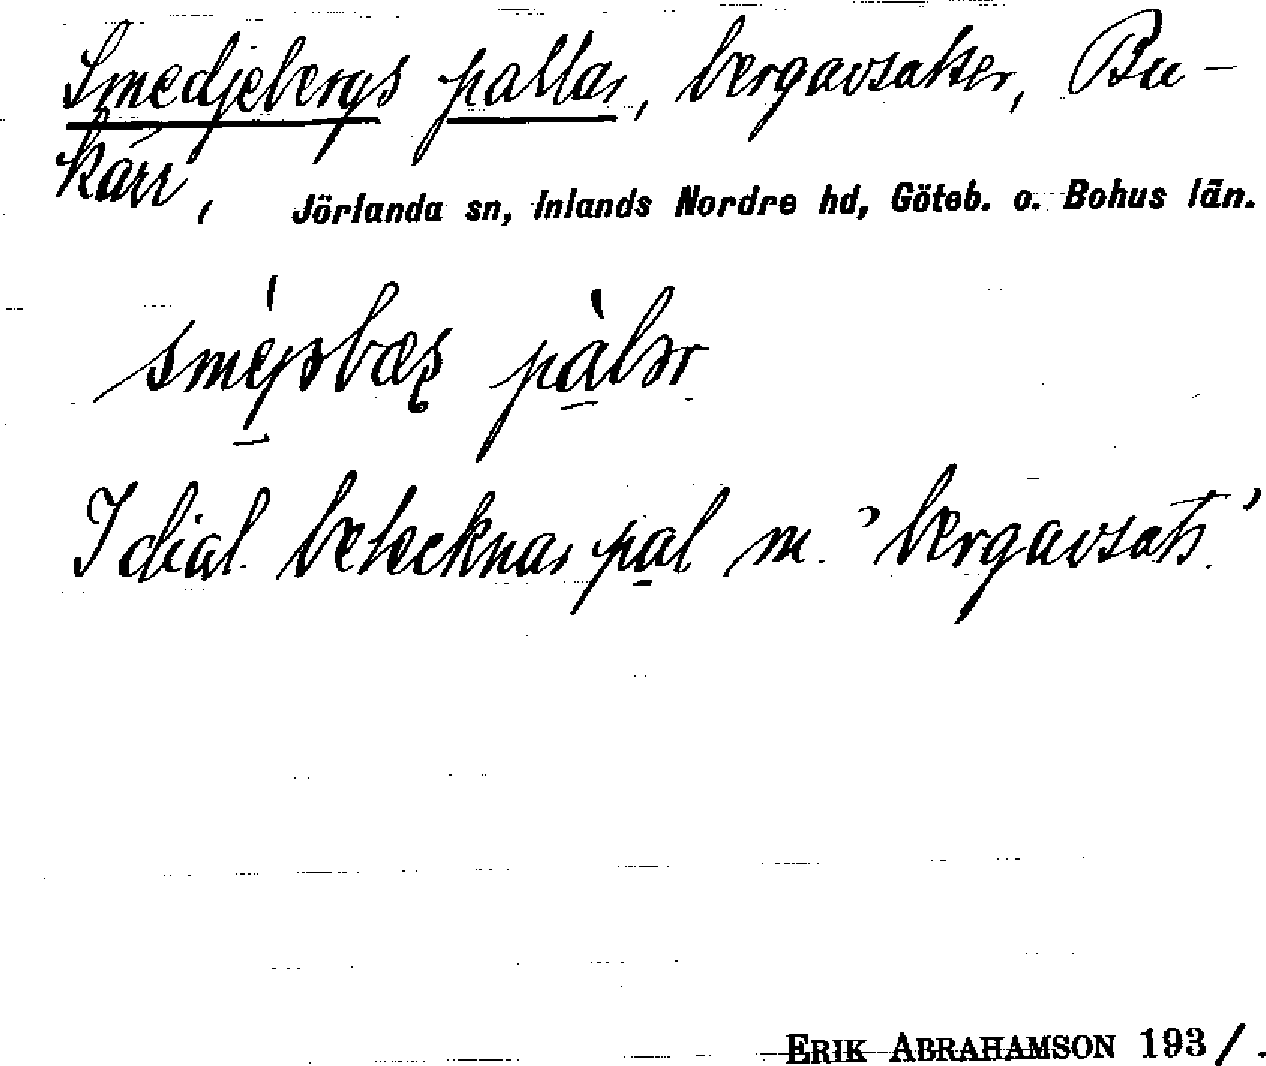 Smedjebergs pallar, bergavsatser, Bu-
kärr,
Jörlanda sn, Inlands Nordre hd, Göteb. o. Bohus län.
pàlər
I dial. betecknas pal m. 'bergavsats'.
ERIK ABRAHAMSON 193/.